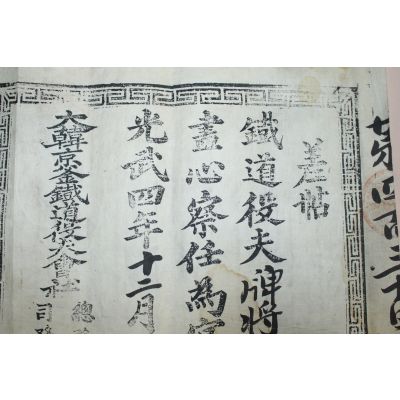 第四百三十
差帖
鐵道役夫牌將
盡心察任為
光武四年十二月
大韓京釜鐵道役夫會社
總
司